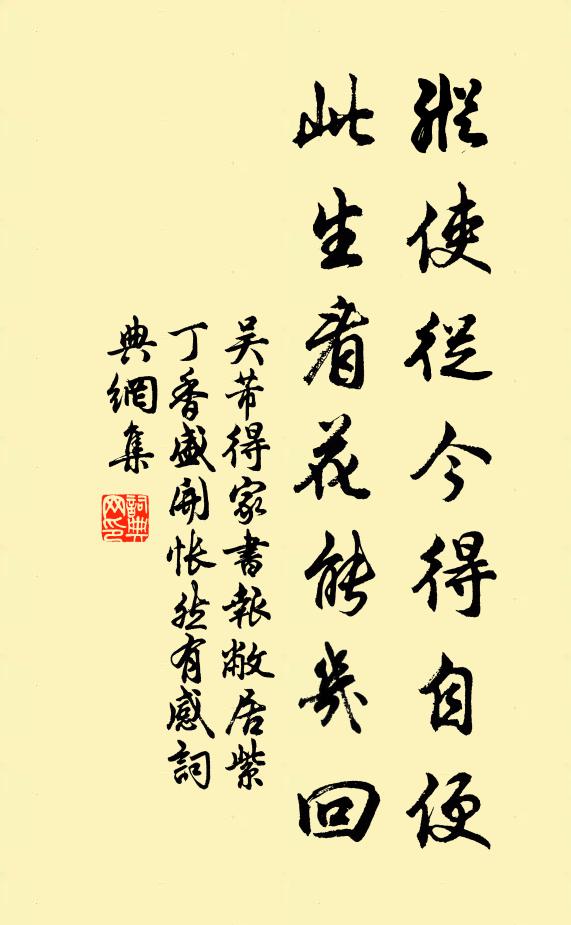 縱使從今得自便
此生看花能幾回
吴芾得家書報敝居紫
丁香盛開悵然有感詞
典網集
詞典
网印